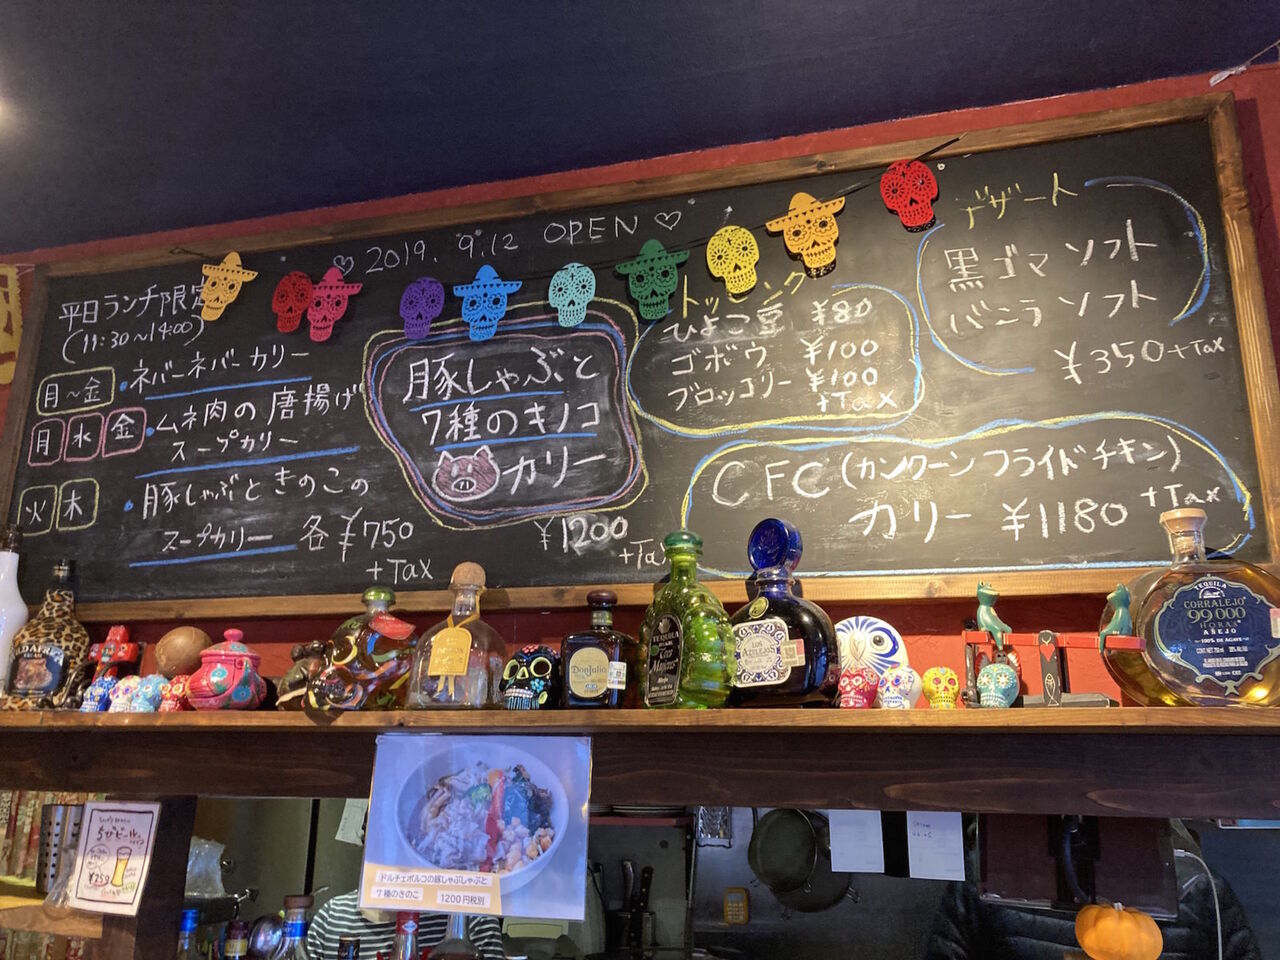 2019. 9.12 OPEN
平日ランチ限定
(11:30~14:00)
月~金
・ネバーネバーカリー
月 水 金
・ムネ肉の唐揚げ
スープカリー
火 木
・豚しゃぶときのこの
スープカリー 各¥750
+Tax
豚しゃぶと
7種のキノコ
カリー
¥1200
+Tax
トッピング
ひよこ豆 ¥80
ゴボウ ¥100
ブロッコリー ¥100
+Tax
デザート
黒ゴマ ソフト
バニラ ソフト
¥350+Tax
CFC(カンクーンフライドチキン)
カリー ¥1180 +Tax
Don Julio
TEQUILA
CORRALEJO
99 000
HORAS
AÑEJO
ドルチェポルコの豚しゃぶしゃぶと
7種のきのこ 1200円税別
ちびビール
¥250